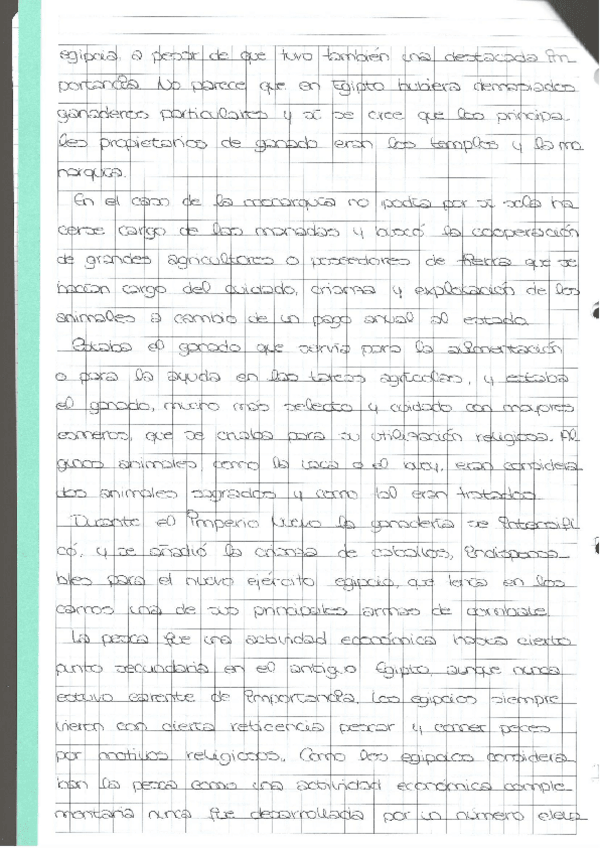 egipcia, a pesar de que tuvo también una destacada im
portancia. No parece que en Egipto hubiera demasiados
ganaderos particulares y sí se cree que los principa
les propietarios de ganado eran los templos y la mo
narquía.
En el caso de la monarquía no podía por sí sola ha
cerse cargo de las manadas y buscó la cooperación
de grandes agricultores o proveedores de tierra que se
hacían cargo del cuidado, crianza y explotación de los
animales a cambio de un pago anual al estado.
Estaba el ganado que servía para la alimentación
o para la ayuda en las tareas agrícolas, y estaba
el ganado, mucho más selecto y cuidado con mayores
esmeros, que se criaba para su utilización religiosa. Al
gunos animales como la vaca o el buey, eran considera
dos animales sagrados y como tal eran tratados.
Durante el Imperio Nuevo la ganadería se intensifi
có, y se añadió la crianza de caballos, indispensa
bles para el nuevo ejército egipcio, que tenía en los
carros una de sus principales armas de combate.
La pesca fue una actividad económica hasta cierto
punto secundaria en el antiguo Egipto, aunque nunca
estuvo carente de importancia. Los egipcios siempre
vieron con cierta reticencia pescar y comer peces
por motivos religiosos. Como los egipcios considera
ban la pesca como una actividad económica comple
mentaria nunca fue desarrollada por un número eleva